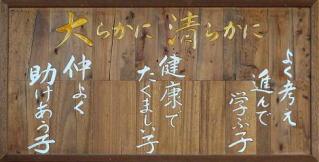 大らかに 清らかに
よく考え
進んで
学ぶ子
健康で
たくましい子
仲よく
助けあう子